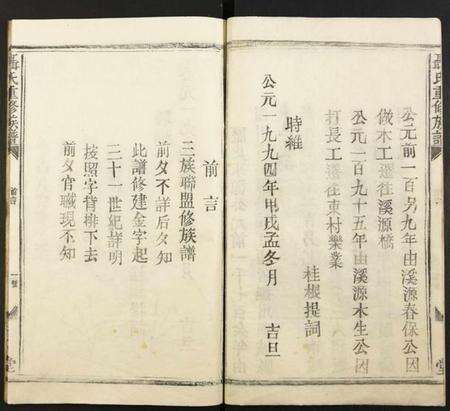 聶氏重修族譜
公元前一百另九年由溪源春保公因
做木工遷往溪源橋
公元一百九十五年由溪源木生公因
打長工遷往東村樂業
桂根提詞
時維
公元一九九四年甲戌孟冬月 吉旦
前言
三族聯盟修族譜
前夕不詳后夕知
此譜修建金字起
二十一世紀詳明
按照字輩排下去
前夕官職現不知
聶氏重修族譜
前言
一
堂